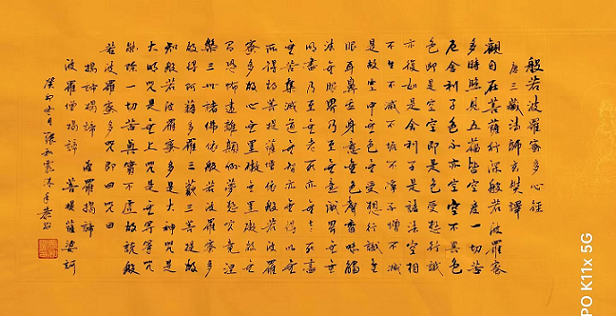 般若波羅蜜多心經
唐三藏法師玄奘譯
觀自在菩薩行深般若波羅蜜
多時照見五蘊皆空度一切苦
厄舍利子色不亦空空不異色
色即是空空即是色受想行識
亦復如是舍利子是諸法空相
不生不滅不垢不淨不增不減
是故空中無色無受想行識無
眼耳鼻舌身意無色聲香味觸
法無眼界乃至無意識界無無
明盡乃至無老死亦無老死盡
無苦集滅道無智亦無得以無
所得故菩提薩埵依般若波羅
蜜多故心無罣礙無罣礙故無
有恐怖遠離顛倒夢想究竟涅
槃三世諸佛依般若波羅蜜多
故得阿耨多羅三藐三菩提故
知般若波羅蜜多是大神咒是
大明咒是無上咒是無等等咒
能除一切苦真實不虛故說般
若波羅蜜多咒即說咒曰
揭諦揭諦 波羅揭諦
波羅僧揭諦 菩提薩婆訶
癸卯 月張
PO K11x 5G